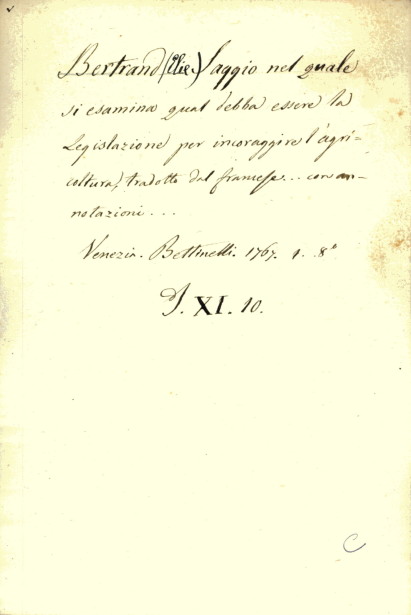 Bertrand (Elie.) Saggio nel quale
si esamina qual debba essere la
Legislazione per incoraggire l'agri=
coltura, tradotto dal francese... con an-
notazioni...
Venezia. Bettinelli. 1767. 1. 8°
J. XI. 10.
C